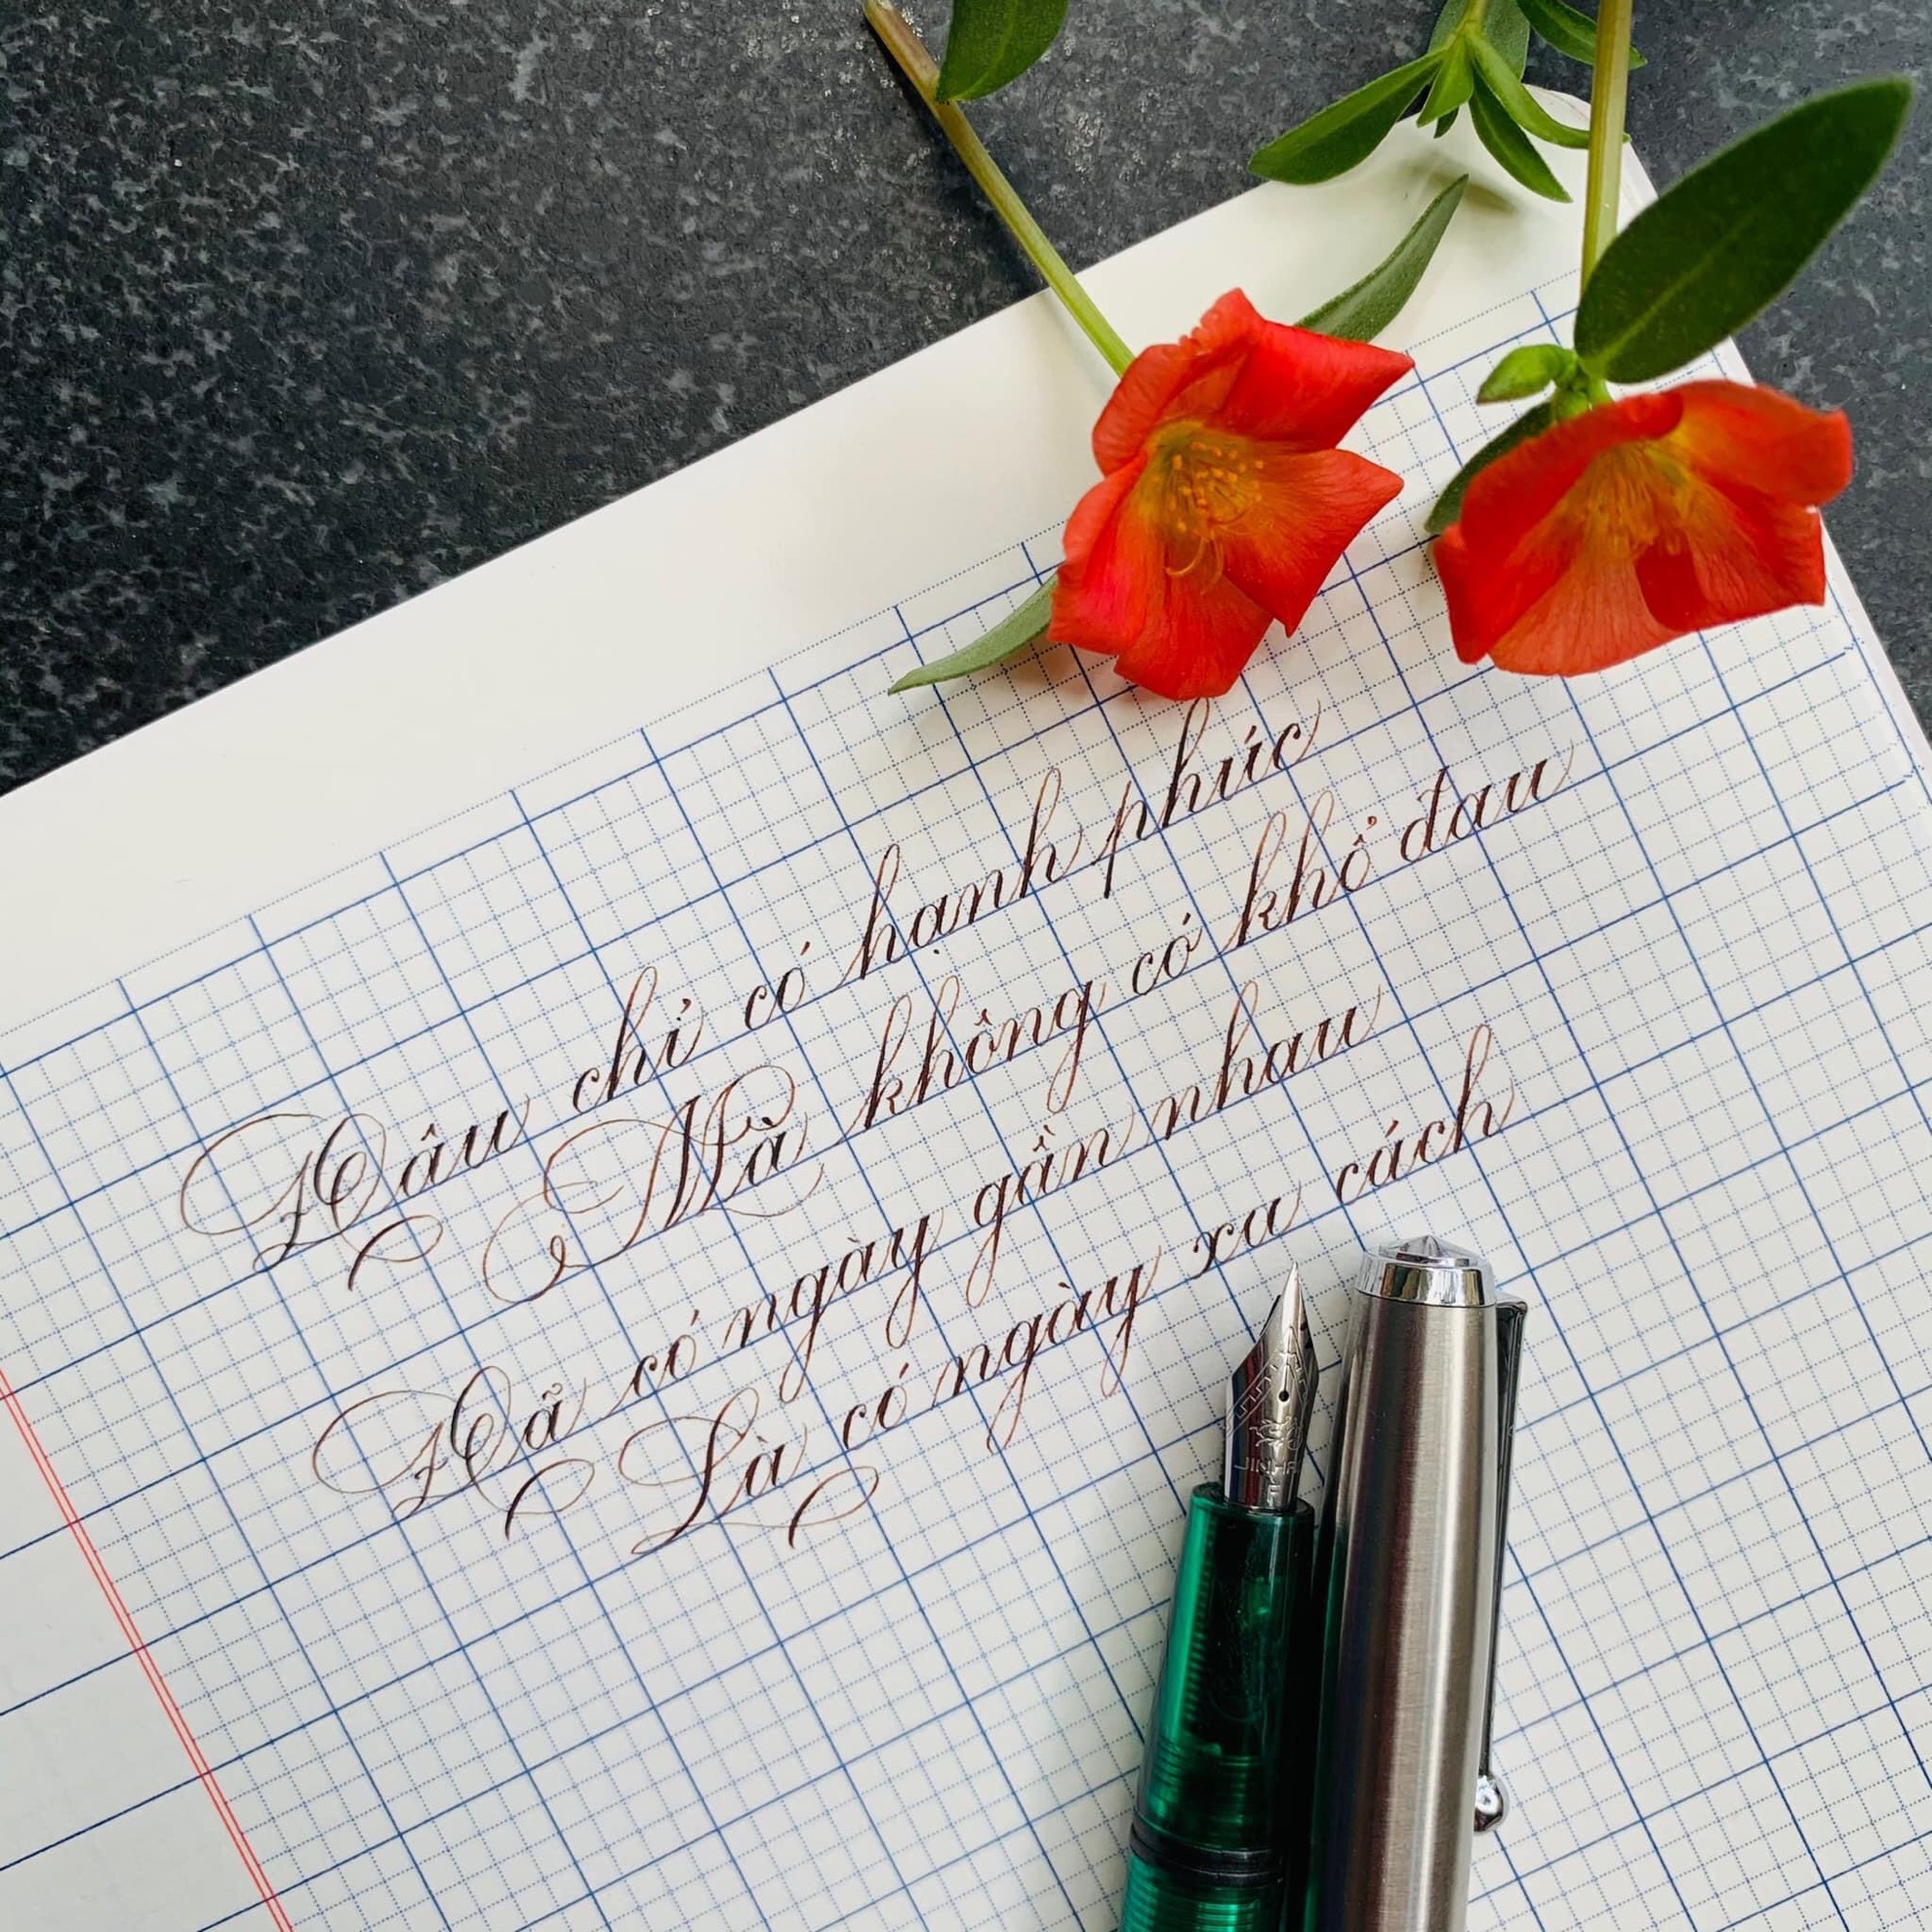 Đâu chỉ có hạnh phúc
Mà không có khổ đau
Đã có ngày gần nhau
Là có ngày xa cách
JINHA
F